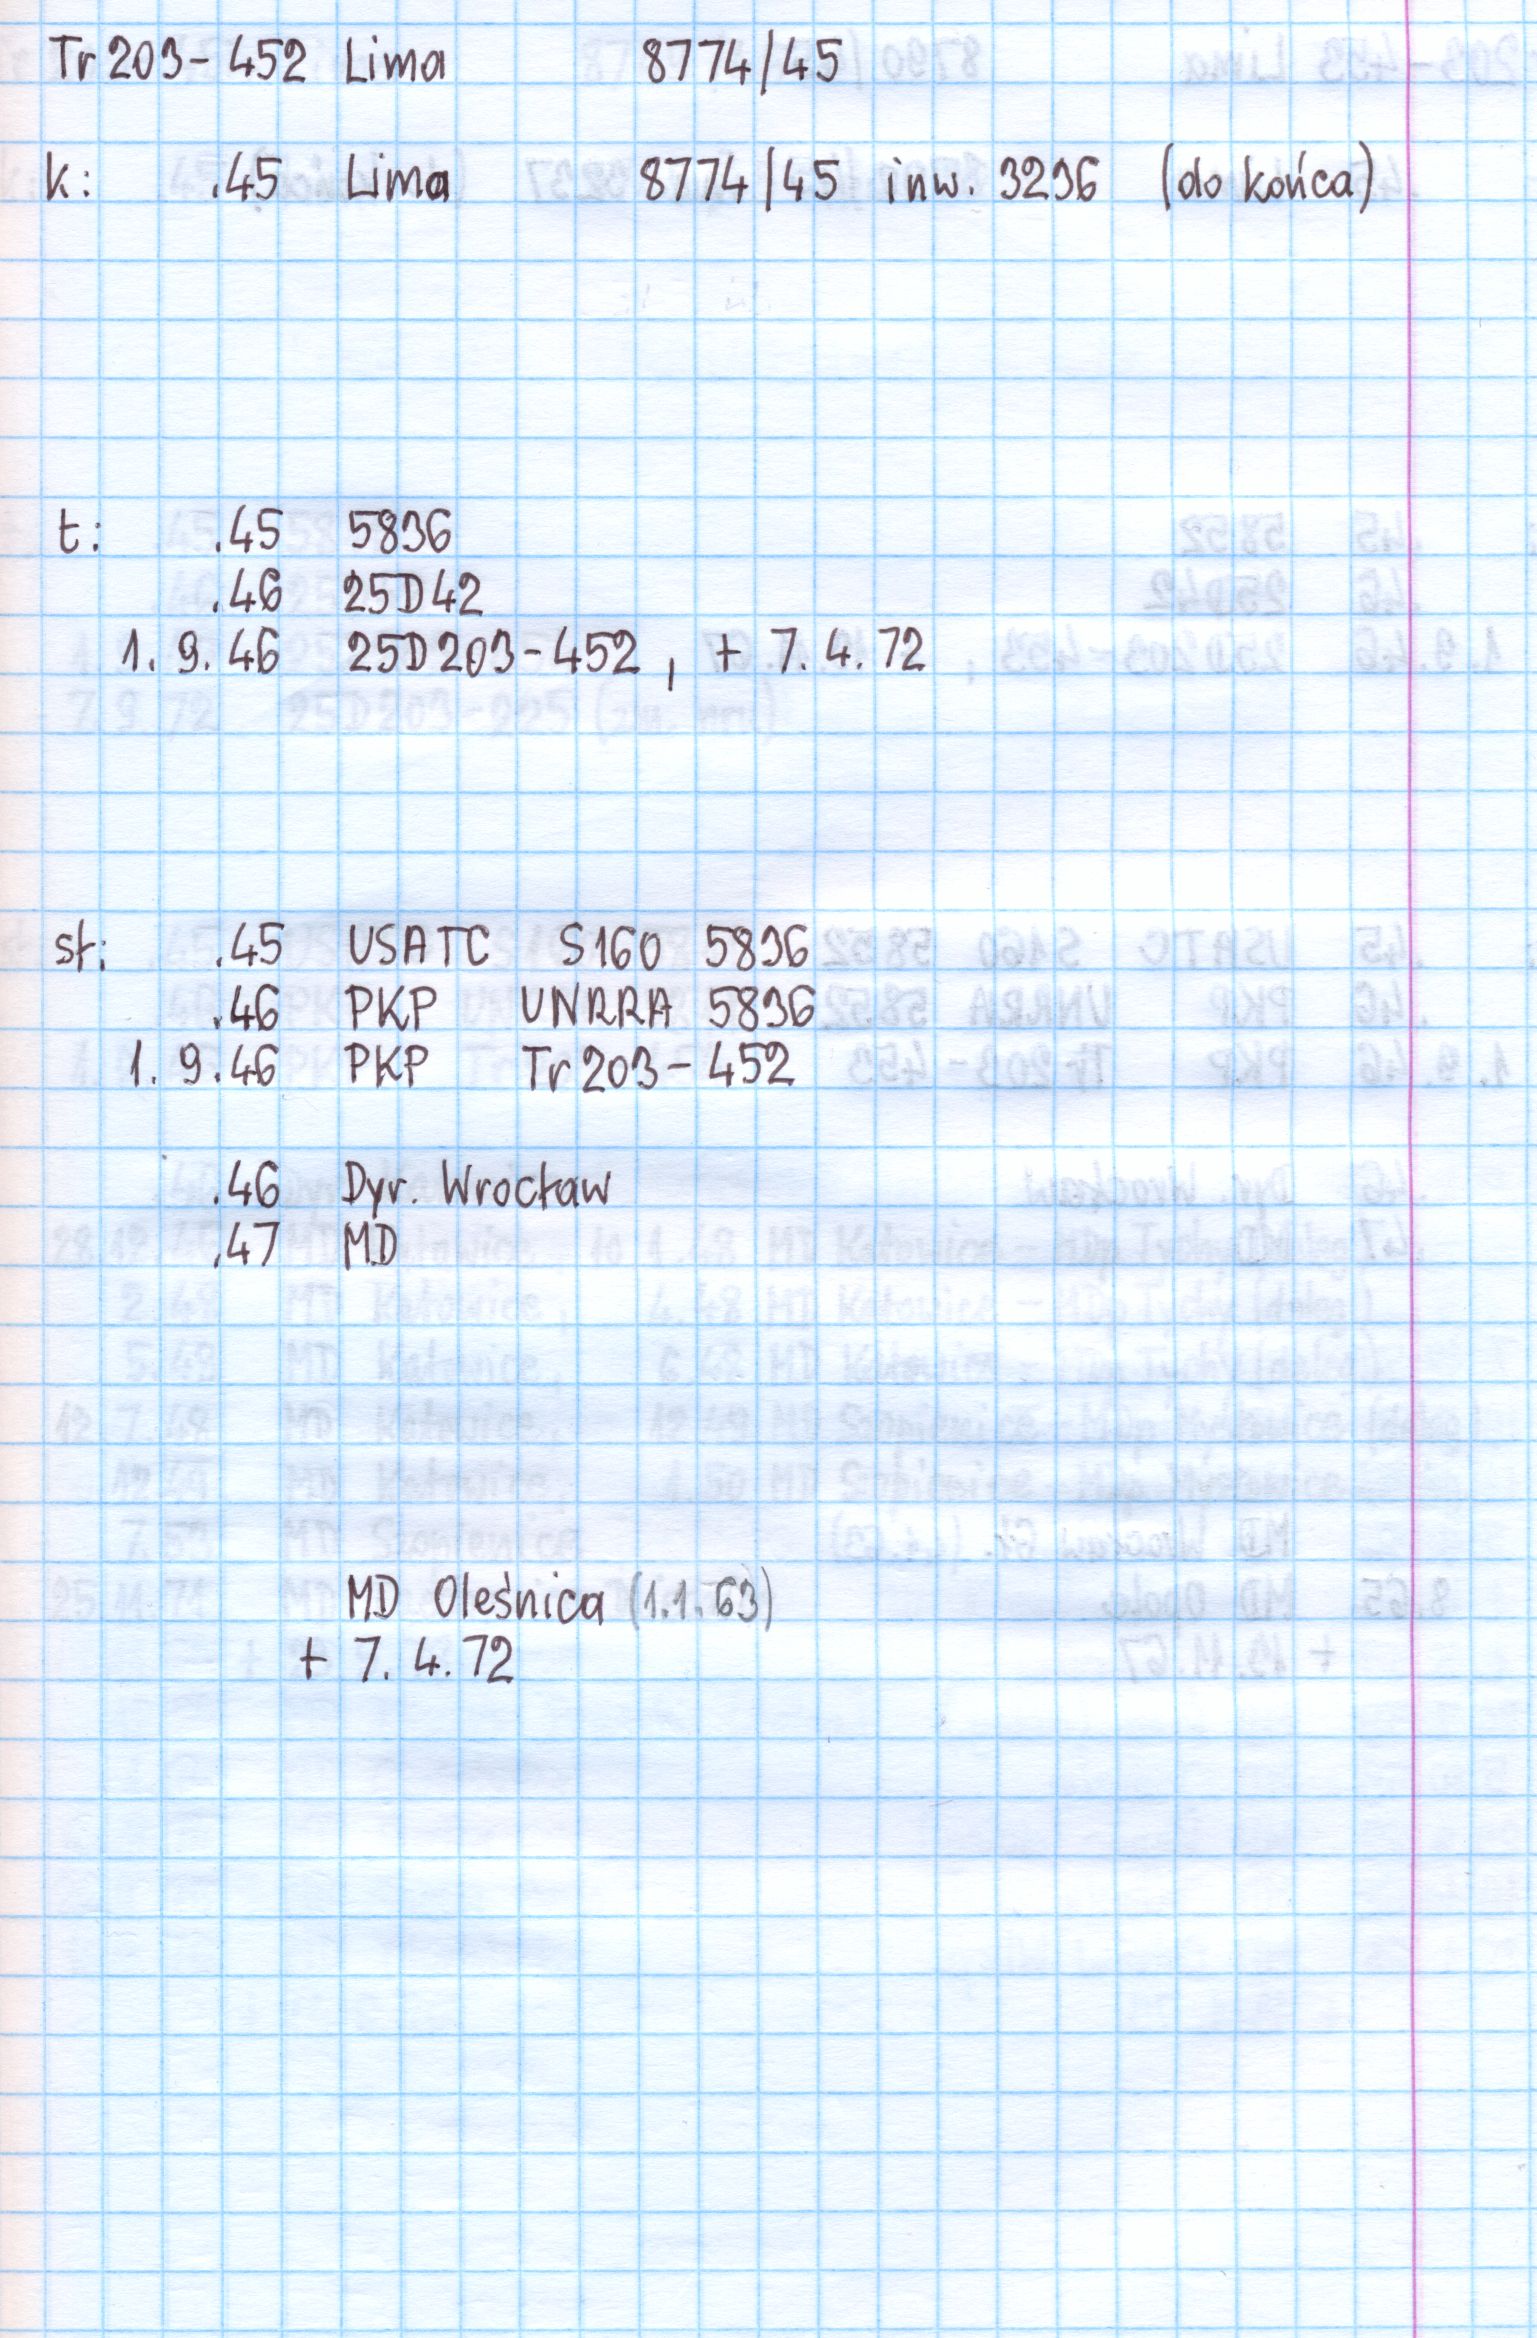 Tr 203-452 Lima 8774/45
k: .45 Lima 8774/45 inw. 3296 (do końca)
t: .45 5836
.46 25D42
1. 9. 46 25D203-452, + 7. 4. 72
st: .45 USATC S160 5836
.46 PKP UNRRA 5836
1. 9. 46 PKP Tr 203-452
.46 Dyr. Wrocław
.47 MD
MD Oleśnica (1.1.63)
+ 7. 4. 72